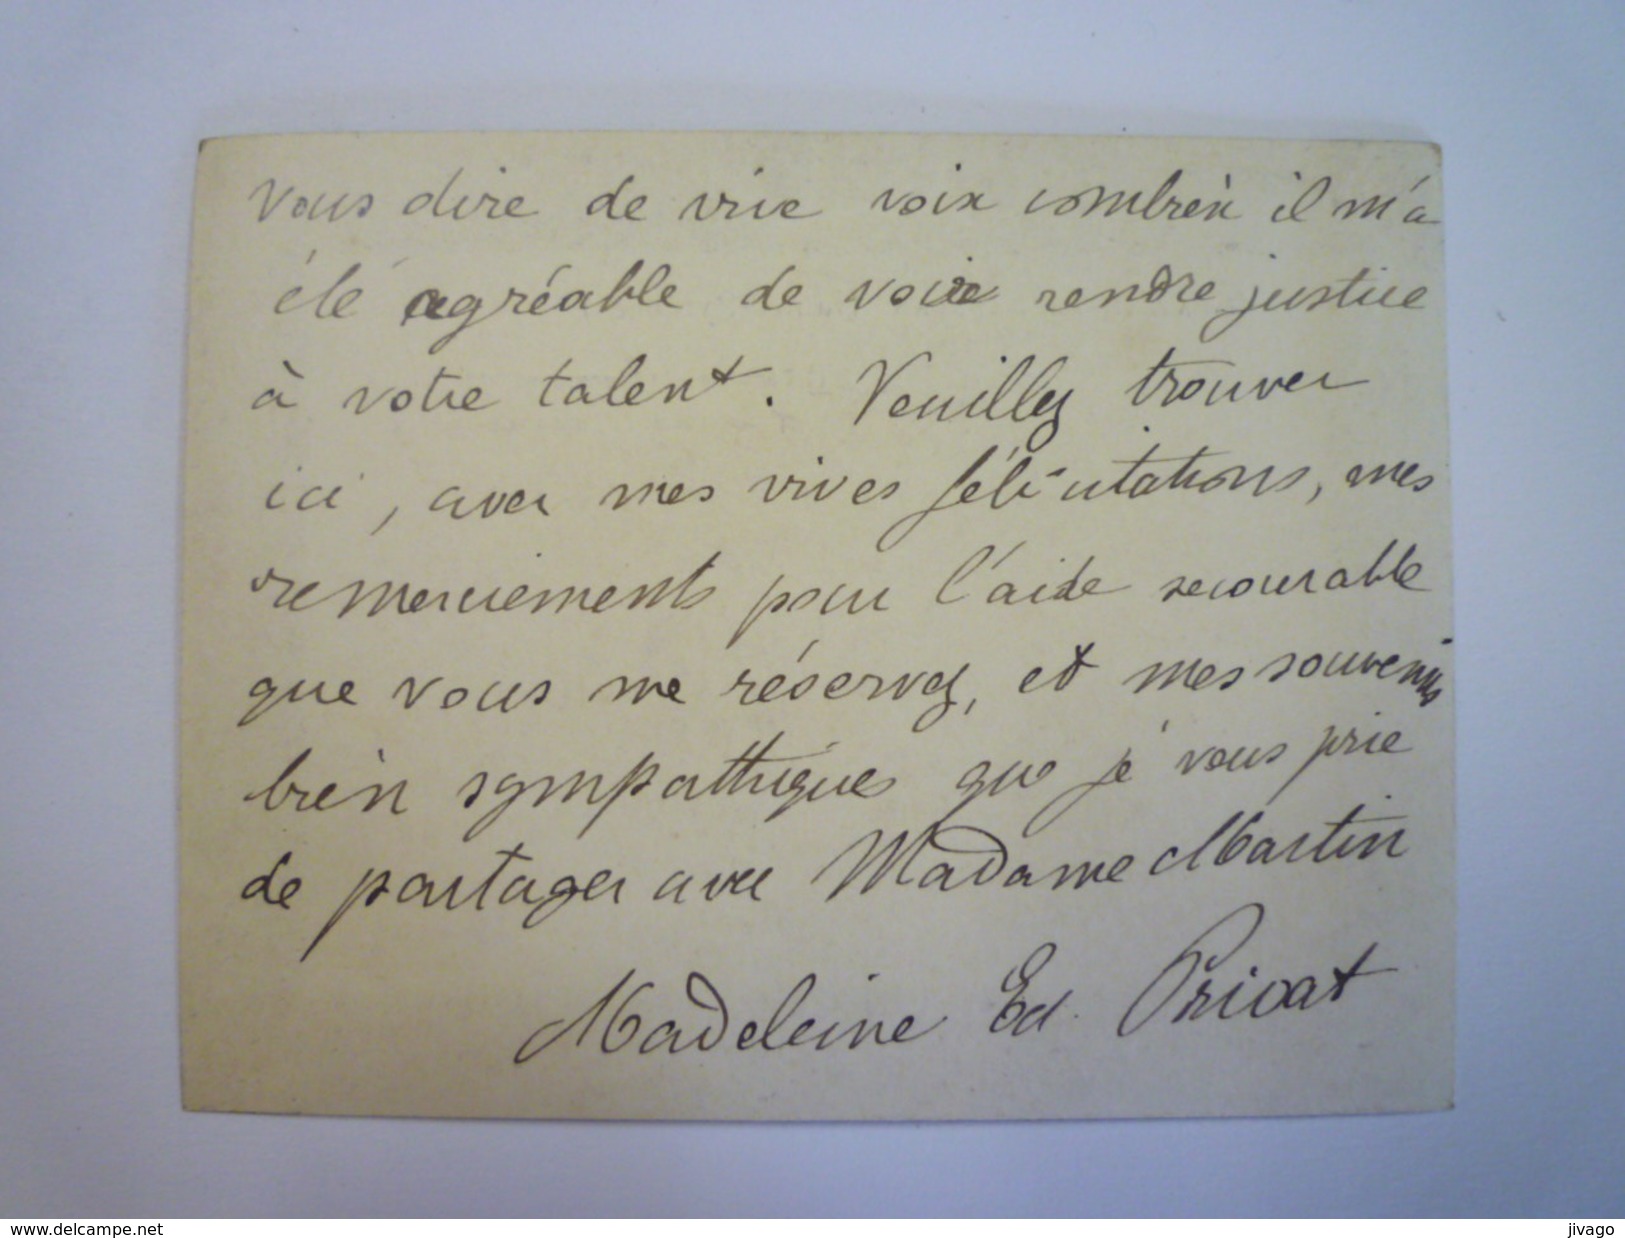 vous dire de vive voix combien il m'a
été agréable de voir rendre justice
à votre talent. Veuillez trouver
ici, avec mes vives félicitations, mes
remerciements pour l'aide secourable
que vous me réservez, et mes souvenirs
bien sympathiques que je vous prie
de partager avec Madame Martin
Madeleine Ed. Privat
www.delcampe.net
jivago